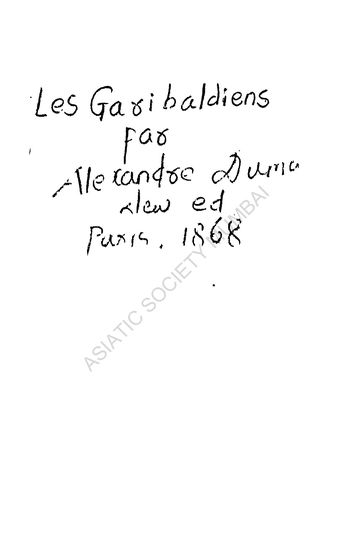 Les Garibaldiens
par
Alexandre Duma
New ed
Paris. 1868
ASIATIC SOCIETY MUMBAI